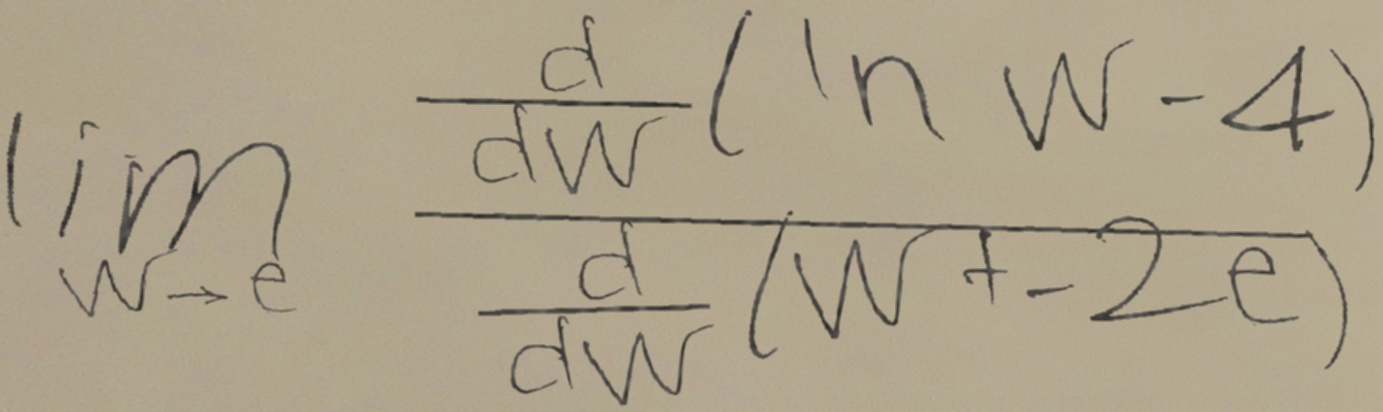 \lim_{w \to e} \frac{\frac{d}{dw}(\ln w - 4)}{\frac{d}{dw}(w + -2e)}